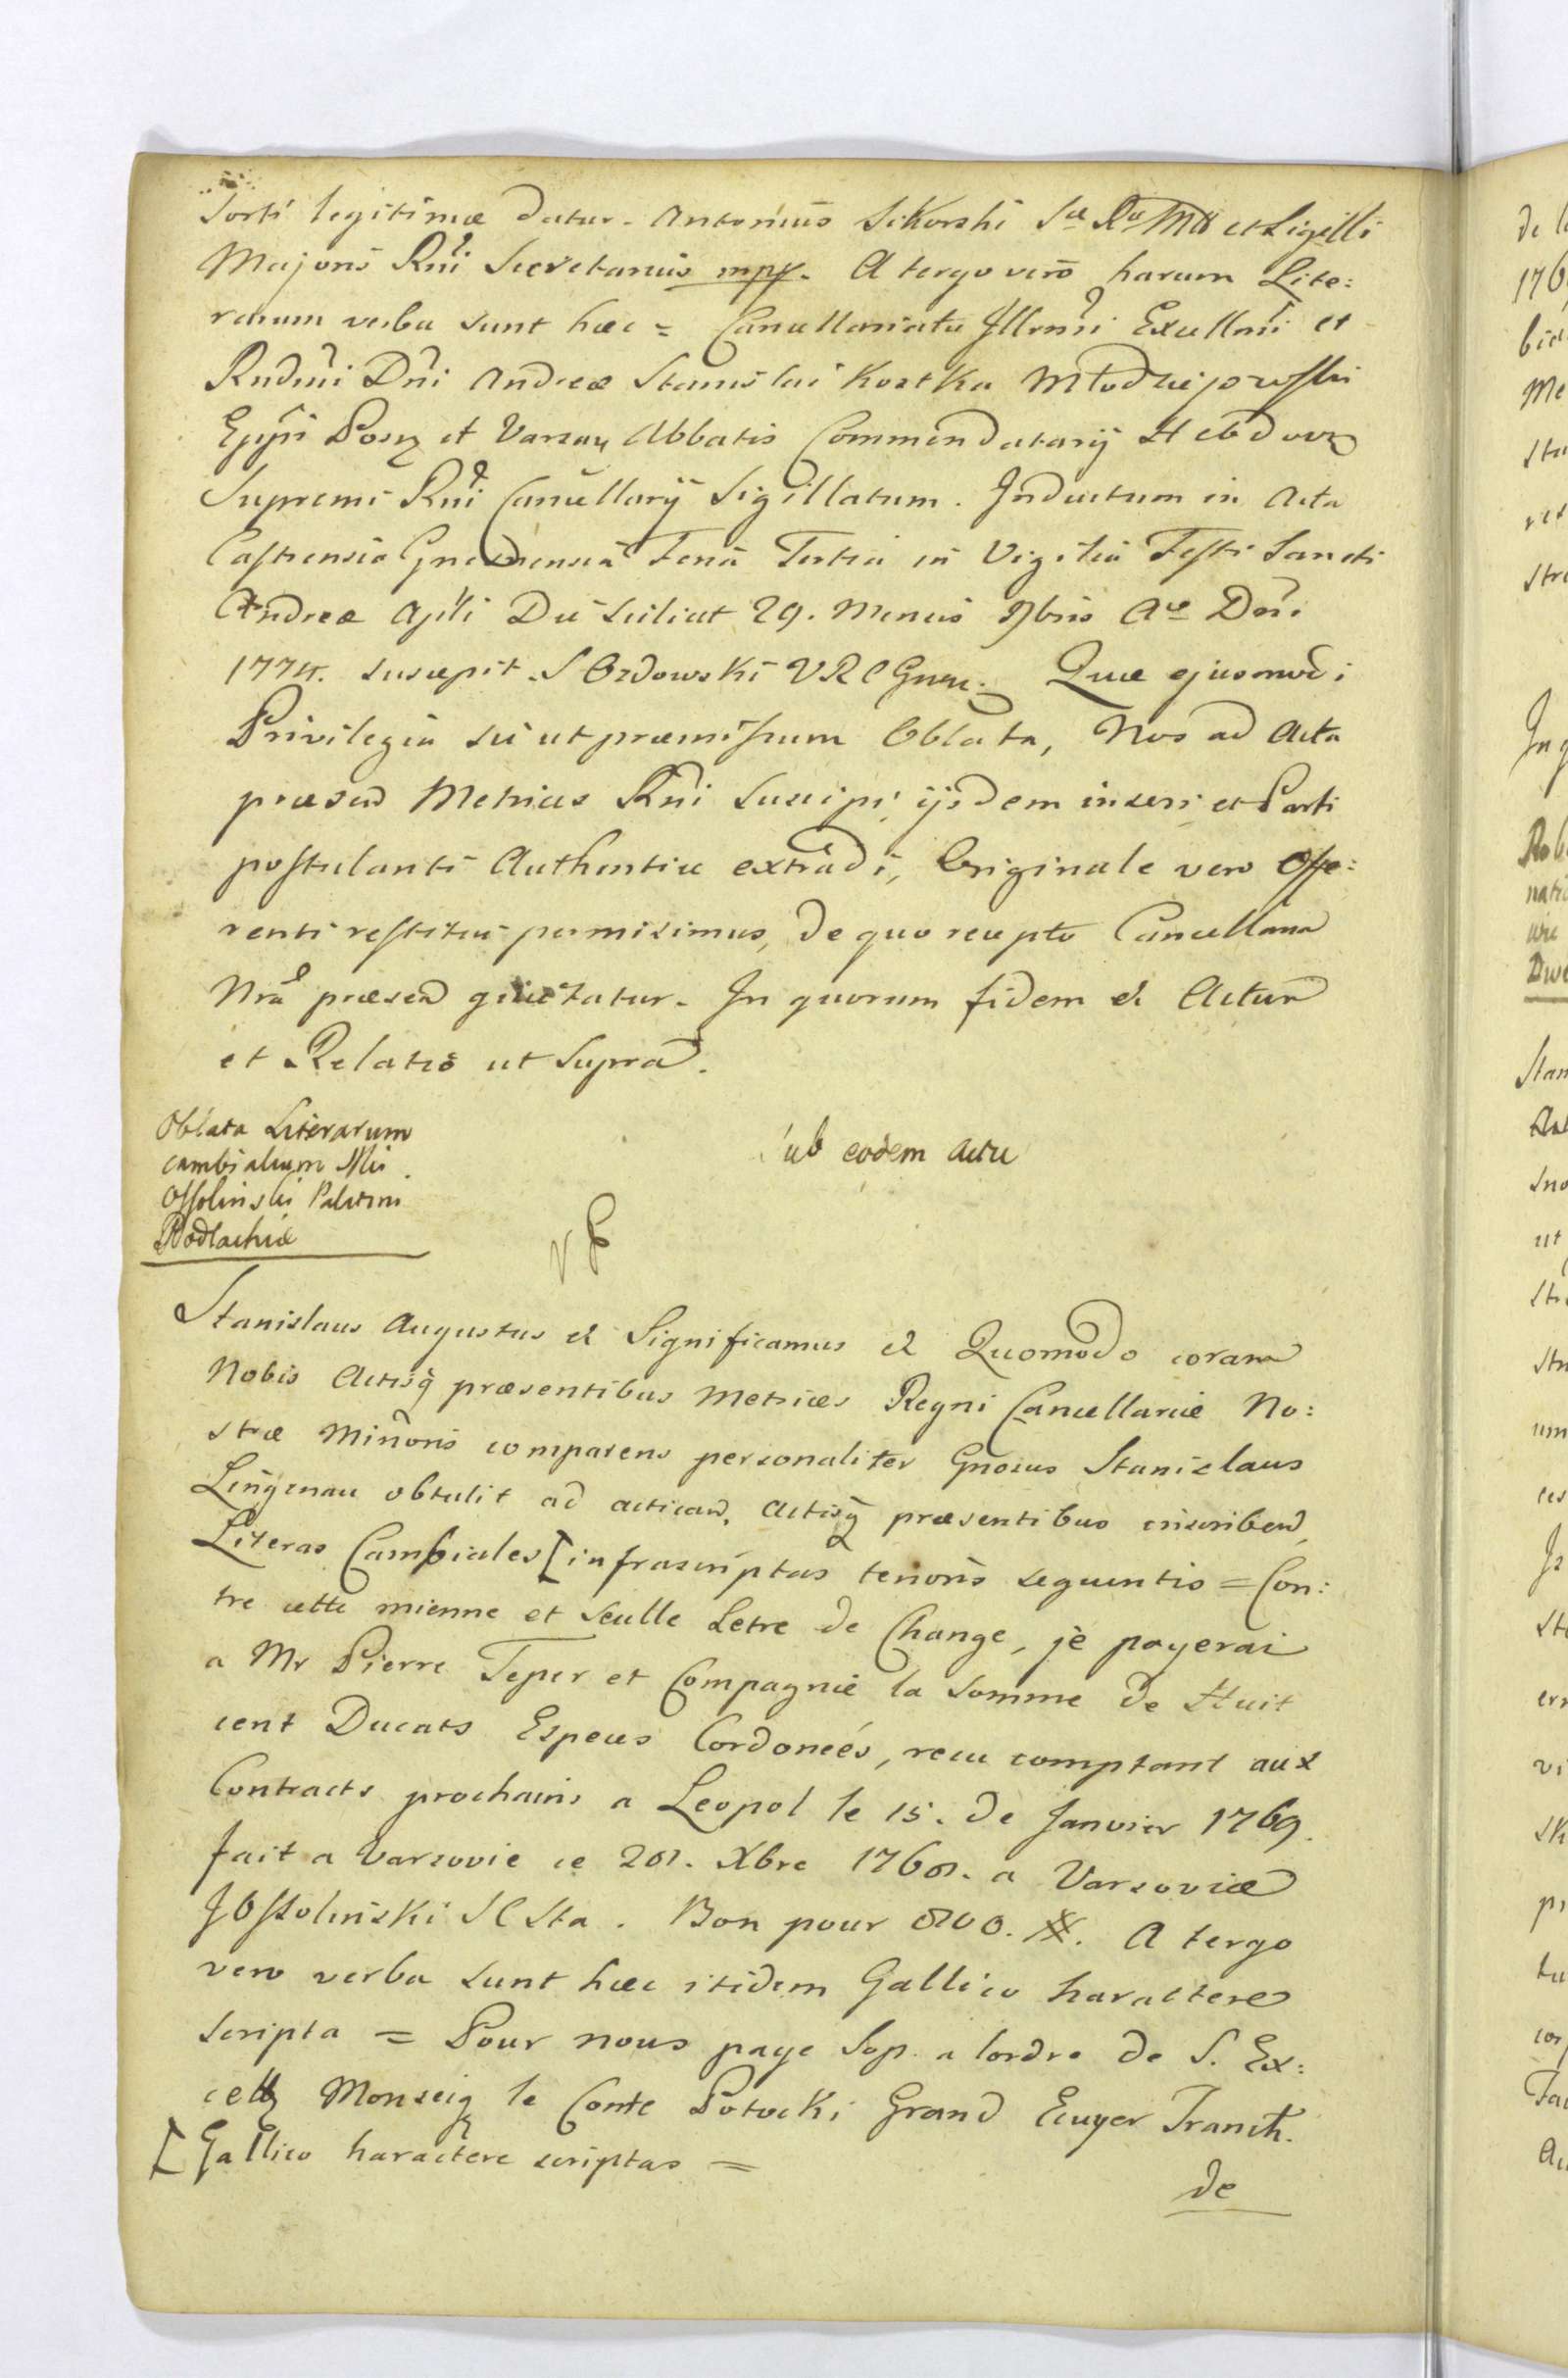 Sorti legitimæ datur. Antonius Sikorski Sæ Ræ Mtt et Sigilli
Majoris Rni Secretarius mpp. A tergo vero harum Lite:
rarum verba sunt hæc = Cancellariatu Illrmi Excellmi et
Rndmi Dni Andreæ Stanislai Kostka Młodziejowski
Eppi Posn et Varsav Abbatis Commendatarij Hebdov
Supremi Rni Cancellarij Sigillatum. Inductum in Acta
Castrensia Gnesnensia Feria Tertia in Vigilia Festi Sancti
Andreæ Apli Die scilicet 29. Mensis 9bris Ao Dni
1774. suscepit. S Ozdowski VRCGnen. Quæ ejusmodi
Privilegia sic ut præmissum Oblata, Nos ad Acta
præsen Metrices Rni suscipi, ijsdem inseri et Parti
postulanti Authentice extradi, Originale vero Offe:
renti restitui permisimus, de quo recepto Cancellaria
Nra præsen quietatur. In quorum fidem et Actum
et Relatio ut Supra.
Oblata Literarum
cambialium Mci
Ossolinski Palatini
Podlachiæ
Sub eodem Actu
Stanislaus Augustus et Significamus et Quomodo coram
Nobis Actisq præsentibus Metrices Regni Cancellariæ No:
stræ Minoris comparens personaliter Gnosus Stanislaus
Lingenau obtulit ad acticand. Actisq præsentibus inscribend,
Literas Cambiales [infrascriptas tenoris sequentis = Con:
tre cette mienne et seulle Letre de Change, je payerai
a Mr Pierre Teper et Compagnie la somme de Huit
cent Ducats Especes Cordoneés, recu comptant aux
Contracts prochains a Leopol le 15. de Janvier 1769.
fait a Varsovie ce 28. Xbre 1768. a Varsoviæ
J Ossoliński S C Sta. Bon pour 800. #. A tergo
vero verba sunt hæc itidem Gallico haractere
scripta = Pour nous paye Sop. a lordre de S. Ex:
cell Monseig le Conte Potocki Grand Ecuyer Tranch.
[Gallico haractere scriptas =
de